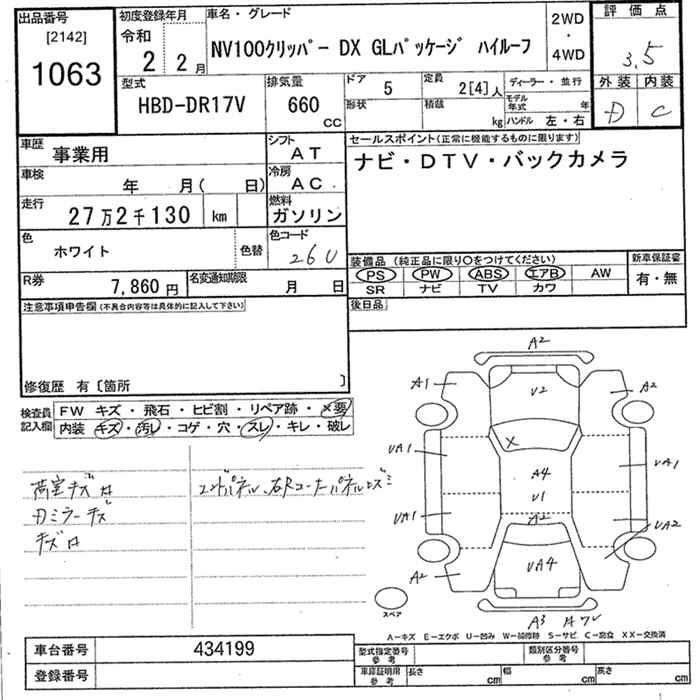 出品番号
[2142]
1063
初度登録年月
令和
2 2月
車名・グレード
NV100クリッパー DX GLパッケージ ハイルーフ
2WD
・
4WD
評価点
3.5
外装 内装
D C
型式
HBD-DR17V
排気量
660
CC
ドア 5
形状
定員 2[4]人
積載 kg
ディーラー・並行
モデル年式 年
ハンドル 左・右
車歴
事業用
シフト
AT
車検
年 月( 日)
冷房
AC
走行
27万2千130 km
燃料
ガソリン
色
ホワイト
色替
色コード
26U
R券
7,860円
名変通知期限
月 日
セールスポイント(正常に機能するものに限ります)
ナビ・DTV・バックカメラ
装備品 (純正品に限り○をつけてください)
PS PW ABS エアB AW
SR ナビ TV カワ
新車保証書
有・無
後日品
注意事項申告欄(不具合内容等は具体的に記入して下さい)
修復歴 有〔箇所 〕
検査員記入欄
FW キズ・飛石・ヒビ割・リペア跡・×要
内装 キズ・汚レ・コゲ・穴・スレ・キレ・破レ
荷室キズ
キズ
A2
A1
A2
U2
X
UA1
UA1
A4
U1
A2
UA1
UA2
UA4
A2
A3
スペア
A−キズ E−エクボ U−凹み W−補修跡 S−サビ C−腐食 XX−交換済
車台番号
434199
登録番号
型式指定番号
参考
類別区分番号
参考
車庫証明用
参考
長さ cm
幅 cm
高さ cm